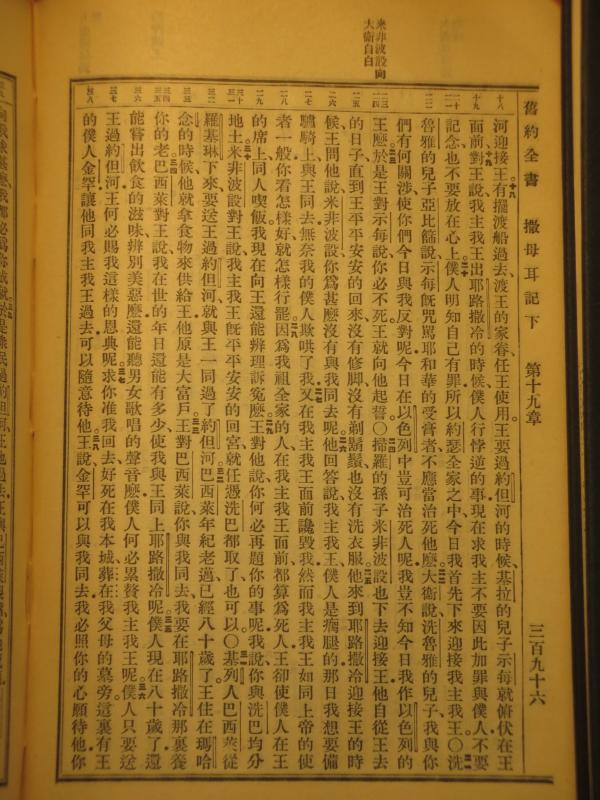 舊約全書 撒母耳記下 第十九章 三百九十六
米非波設向
大衞自白
十八 河迎接王有擺渡船過去渡王的家眷任王使用王要過約但河的時候基拉的兒子示每就俯伏在王
十九 面前對王說我主我王出耶路撒冷的時候僕人行悖逆的事現在求我主不要因此加罪與僕人不要
二十 記念也不要放在心上僕人明知自己有罪所以約瑟全家之中今日我首先下來迎接我主我王〇洗
魯雅的兒子亞比篩說示每旣咒罵耶和華的受膏者不應當治死他麼大衞說洗魯雅的兒子我與你
們有何關涉使你們今日與我反對呢今日在以色列中豈可治死人呢我豈不知今日我作以色列的
王麼於是王對示每說你必不死王就向他起誓〇掃羅的孫子米非波設也下去迎接王他自從王去
的日子直到王平平安安的回來沒有修脚沒有剃鬍鬚也沒有洗衣服他來到耶路撒冷迎接王的時
候王問他說米非波設你爲甚麼沒有與我同去呢他回答說我主我王僕人是瘸腿的那日我想要備
驢騎上與王同去無奈我的僕人欺哄了我又在我主我王面前讒毀我然而我主我王如同上帝的使
者一般你看怎樣好就怎樣行罷因爲我祖全家的人在我主我王面前都算爲死人王卻使僕人在王
的席上同人喫飯我現在向王還能辨理訴冤麼王對他說你何必再題你的事呢我說你與洗巴均分
地土米非波設對王說我主我王旣平平安安的回宮就任憑洗巴都取了也可以〇基列人巴西萊從
羅基琳下來要送王過約但河就與王一同過了約但河巴西萊年紀老邁已經八十歲了王住在瑪哈
念的時候他就拿食物來供給王他原是大富戶王對巴西萊說你與我同去我要在耶路撒冷那裏養
你的老巴西萊對王說我在世的年日還能有多少使我與王同上耶路撒冷呢僕人現在八十歲了還
能嘗出飲食的滋味辨別美惡麼還能聽男女歌唱的聲音麼僕人何必累贅我主我王呢僕人只要送
王過約但河王何必賜我這樣的恩典呢求你准我回去好死在我本城葬在我父母的墓旁這裏有王
的僕人金罕讓他同我主我王過去可以隨意待他王說金罕可以與我同去我必照你的心願待他你